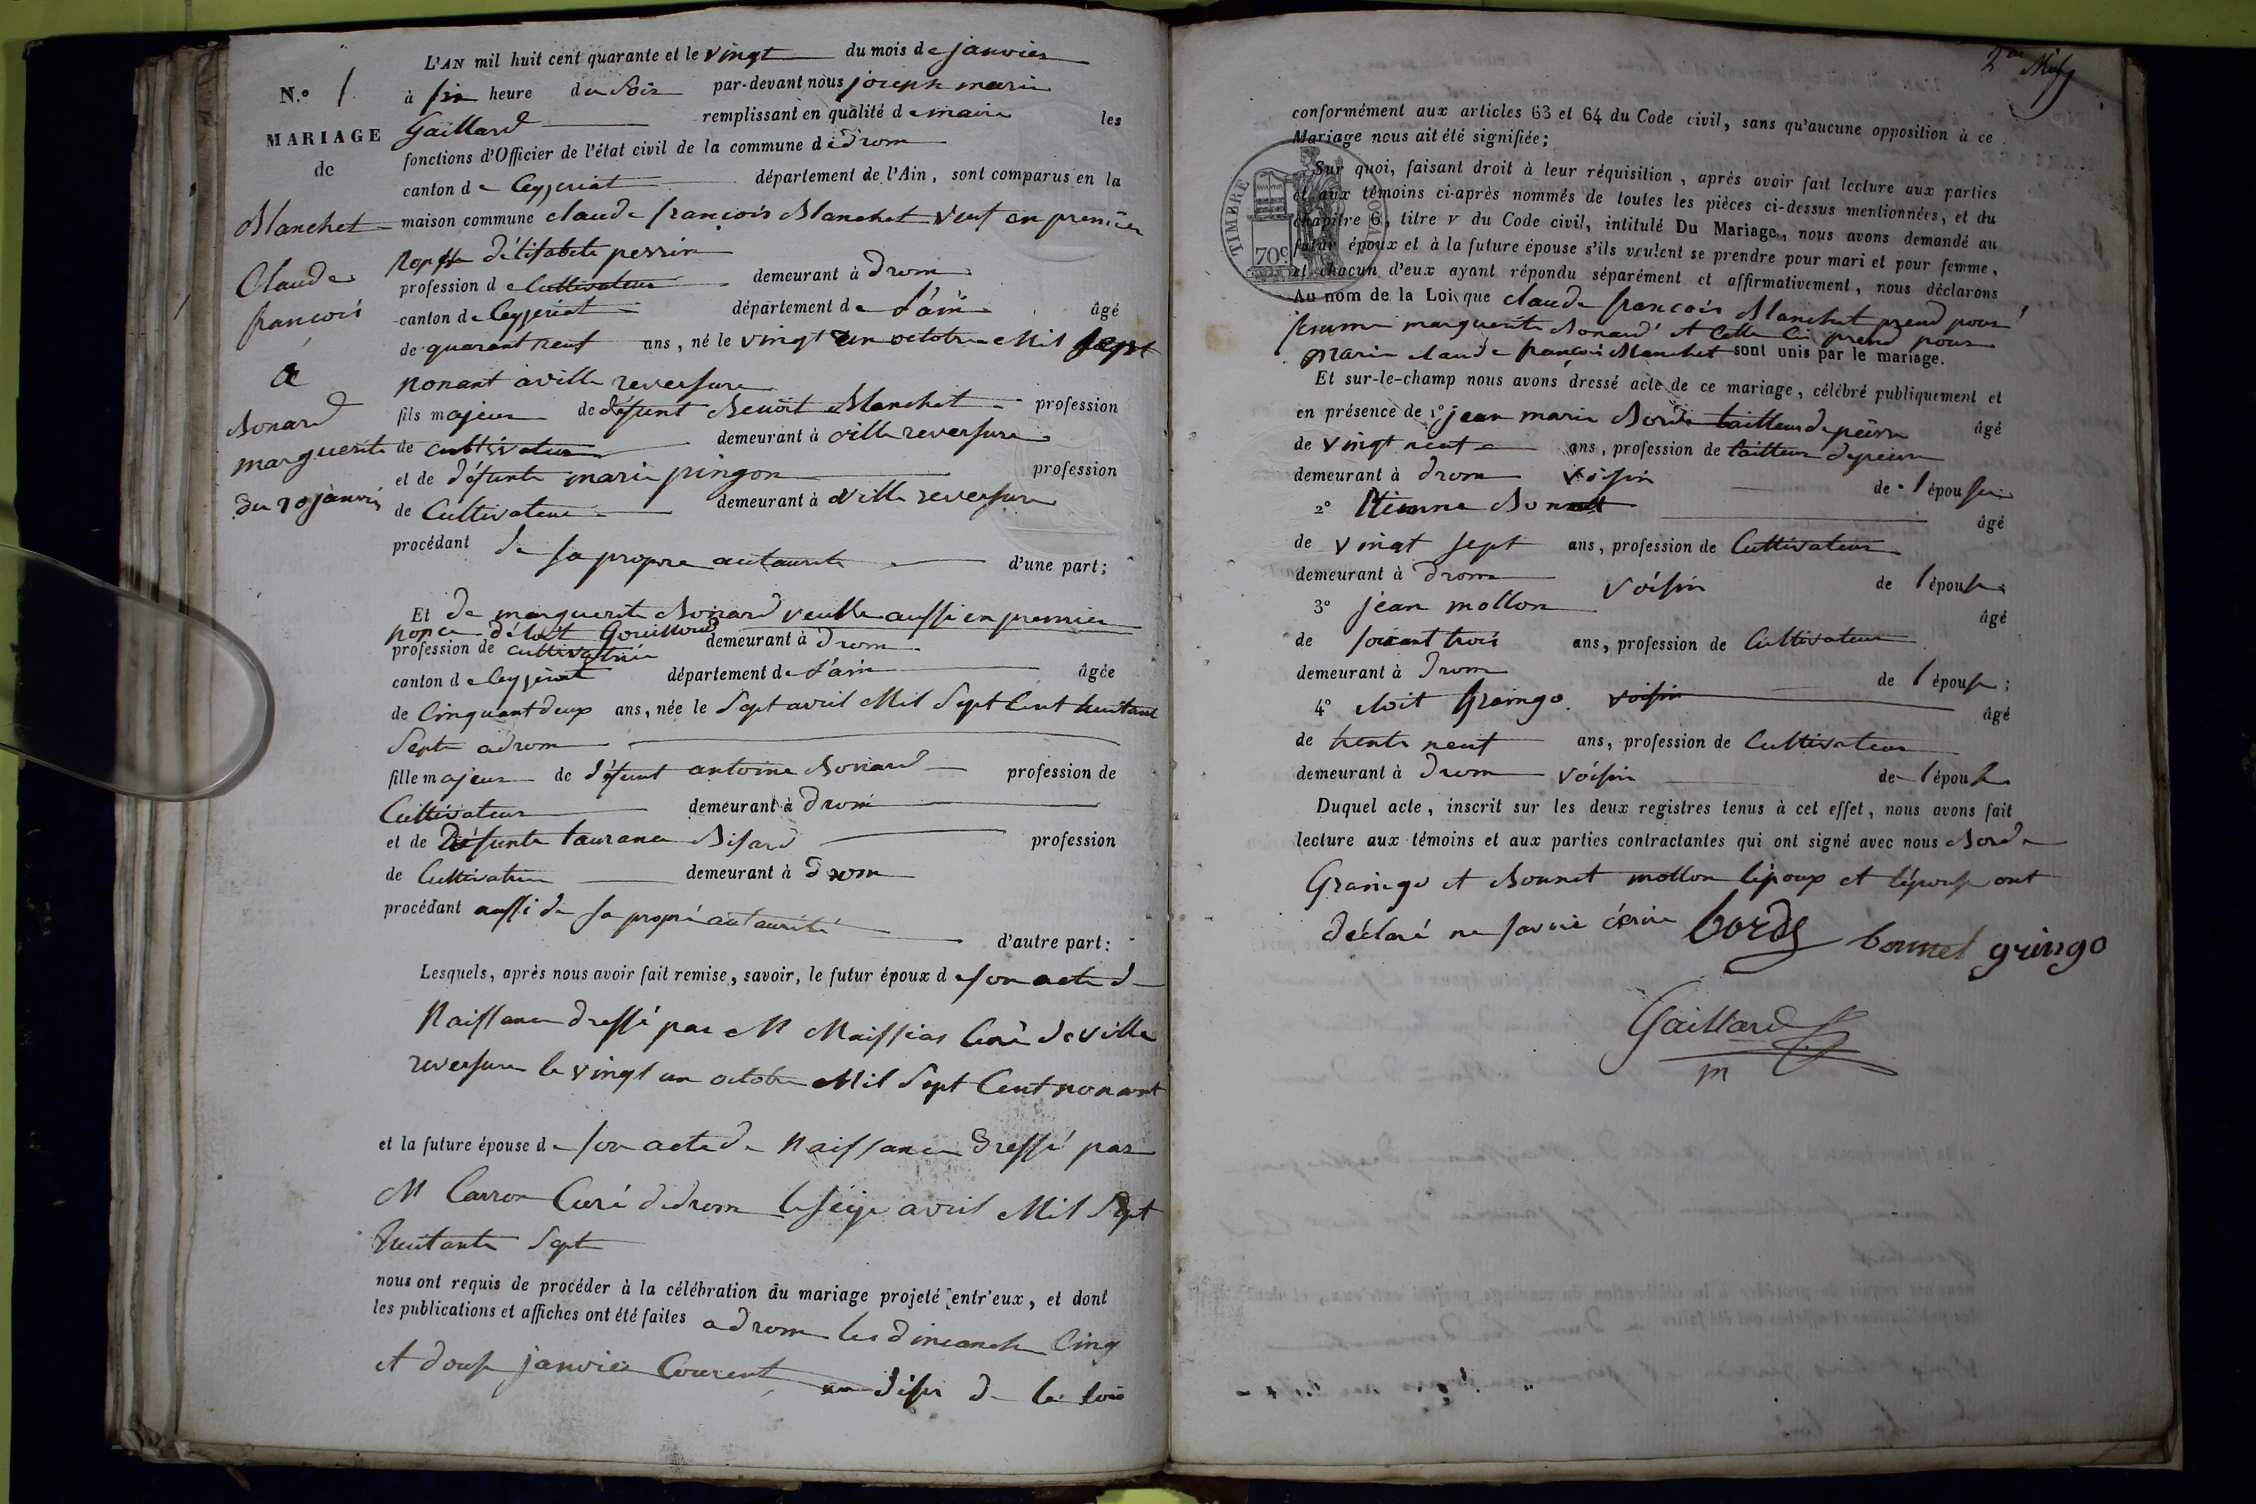 N.º 1
MARIAGE
de
Blanchet
Claude
françois
&
Bonard
marguerite
du 20 janvier
L'AN mil huit cent quarante et le vingt du mois de janvier
à six heure du soir par-devant nous joseph marie
Gaillard remplissant en qualité de maire les
fonctions d'Officier de l'état civil de la commune de drom
canton de Ceyzeriat département de l'Ain, sont comparus en la
maison commune claude françois Blanchet veuf en premier
d'élisabete perrin
profession de Cultivateur demeurant à drom
canton de Ceyzeriat département de l'ain âgé
de quarant neuf ans, né le vingt un octobre Mil sept
nonant à ville reversure
fils majeur de défunt Benoit Blanchet profession
de cultivateur demeurant à ville reversure
et de défunte marie pingon profession
de Cultivateur demeurant à ville reversure
procédant de sa propre autaurité d'une part;
Et de marguerite Bonard veuve aussi en premier
nopce
profession de cultivatrice demeurant à drom
canton de Ceyzeriat département de l'ain âgée
de Cinquant deux ans, née le Sept avril Mil Sept Cent huitant
Sept a drom
fille majeur de défunt antoine Bonard profession de
Cultivateur demeurant à drom
et de Défunte Bisard profession
de Cultivatrice demeurant à Drom
procédant aussi de sa propre autaurité d'autre part:
Lesquels, après nous avoir fait remise, savoir, le futur époux de son acte de
Naissance dressé par M Curé de ville
reversure le vingt un octobre Mil Sept Cent nonant
et la future épouse de son acte de Naissance Dressé par
M Carron Curé de drom le avril Mil Sept
huitante Sept
nous ont requis de procéder à la célébration du mariage projeté entr'eux, et dont
les publications et affiches ont été faites a drom les dimanche Cinq
et douse janvier Courent de la loi
2me
conformément aux articles 63 et 64 du Code civil, sans qu'aucune opposition à ce
Mariage nous ait été signifiée;
Sur quoi, faisant droit à leur réquisition, après avoir fait lecture aux parties
et aux témoins ci-après nommés de toutes les pièces ci-dessus mentionnées, et du
chapitre 6, titre V du Code civil, intitulé Du Mariage, nous avons demandé au
futur époux et à la future épouse s'ils veulent se prendre pour mari et pour femme,
et chacun d'eux ayant répondu séparément et affirmativement, nous déclarons
Au nom de la Loi que claude françois Blanchet prend pour
femme marguerite Bonard et Celle Ci prend pour
marie claude françois Blanchet sont unis par le mariage.
Et sur-le-champ nous avons dressé acte de ce mariage, célébré publiquement et
en présence de 1º jean marie Borde tailleur de peirre âgé
de vingt neuf ans, profession de tailleur de peirre
demeurant à drom voisin de l'épouse
2º Etienne Bonnet âgé
de vingt sept ans, profession de Cultivateur
demeurant à drom voisin de l'épouse
3º jean mollon âgé
de soixant trois ans, profession de Cultivateur
demeurant à drom voisin de l'épouse;
4º Gringo âgé
de trente neuf ans, profession de Cultivateur
demeurant à drom voisin de l'épouse
Duquel acte, inscrit sur les deux registres tenus à cet effet, nous avons fait
lecture aux témoins et aux parties contractantes qui ont signé avec nous Borde
Graingo et Bonnet mollon l'époux et l'épouse ont
déclaré ne savoir écrire borde bonnet gringo
Gaillard
m
TIMBRE ROYAL
70c